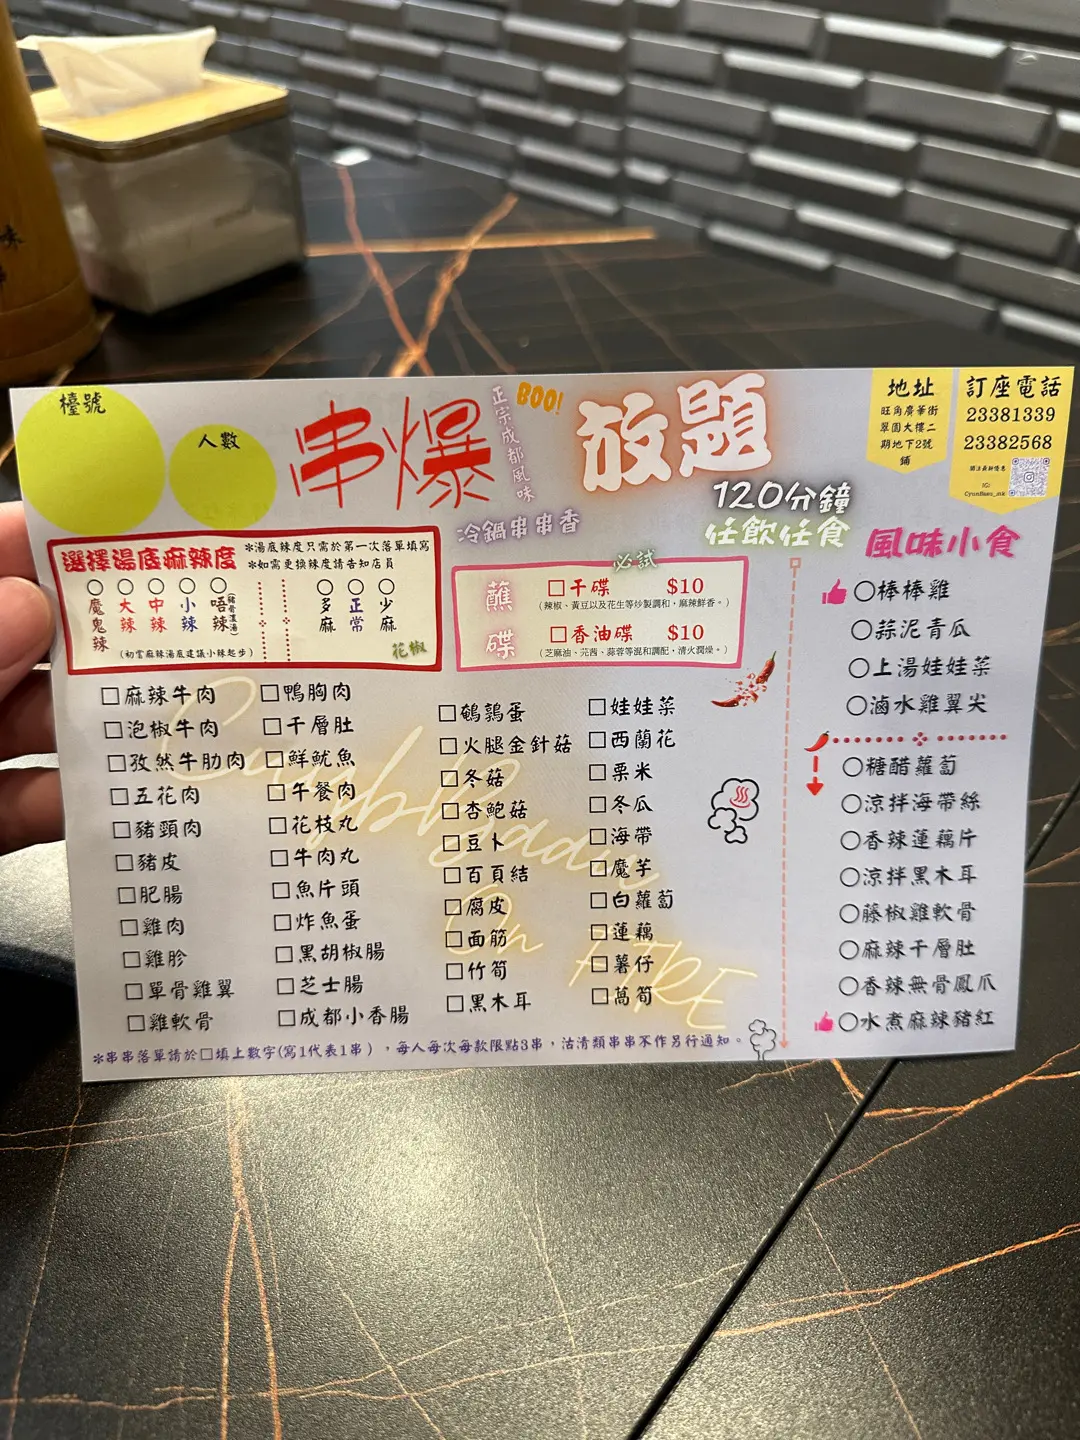 檯號
人數
串爆
正宗成都風味
BOO!
放題
冷鍋串串香
120分鐘
任飲任食
地址
旺角廣華街
翠園大樓二
期地下2號
舖
訂座電話
23381339
23382568
IG:
選擇湯底麻辣度
*湯底辣度只需於第一次落單填寫
*如需更換辣度請告知店員
○魔鬼辣
○大辣
○中辣
○小辣
○唔辣
○多麻
○正常
○少麻
(初嘗麻辣湯底建議小辣起步)
花椒
必試
蘸碟
□干碟 $10
(辣椒、黃豆以及花生等炒製調和，麻辣鮮香。)
□香油碟 $10
(芝麻油、芫茜、蒜蓉等混和調配，清火潤燥。)
□麻辣牛肉
□泡椒牛肉
□孜然牛肋肉
□五花肉
□豬頸肉
□豬皮
□肥腸
□雞肉
□雞胗
□單骨雞翼
□雞軟骨
□鴨胸肉
□千層肚
□鮮魷魚
□午餐肉
□花枝丸
□牛肉丸
□魚片頭
□炸魚蛋
□黑胡椒腸
□芝士腸
□成都小香腸
□鵪鶉蛋
□火腿金針菇
□冬菇
□杏鮑菇
□豆卜
□百頁結
□腐皮
□面筋
□竹筍
□黑木耳
□娃娃菜
□西蘭花
□粟米
□冬瓜
□海帶
□魔芋
□白蘿蔔
□蓮藕
□薯仔
□萵筍
On FIRE
*串串落單請於□填上數字(寫1代表1串)，每人每次每款限點3串，沽清類串串不作另行通知。
風味小食
○棒棒雞
○蒜泥青瓜
○上湯娃娃菜
○滷水雞翼尖
○糖醋蘿蔔
○涼拌海帶絲
○香辣蓮藕片
○涼拌黑木耳
○藤椒雞軟骨
○麻辣千層肚
○香辣無骨鳳爪
○水煮麻辣豬紅